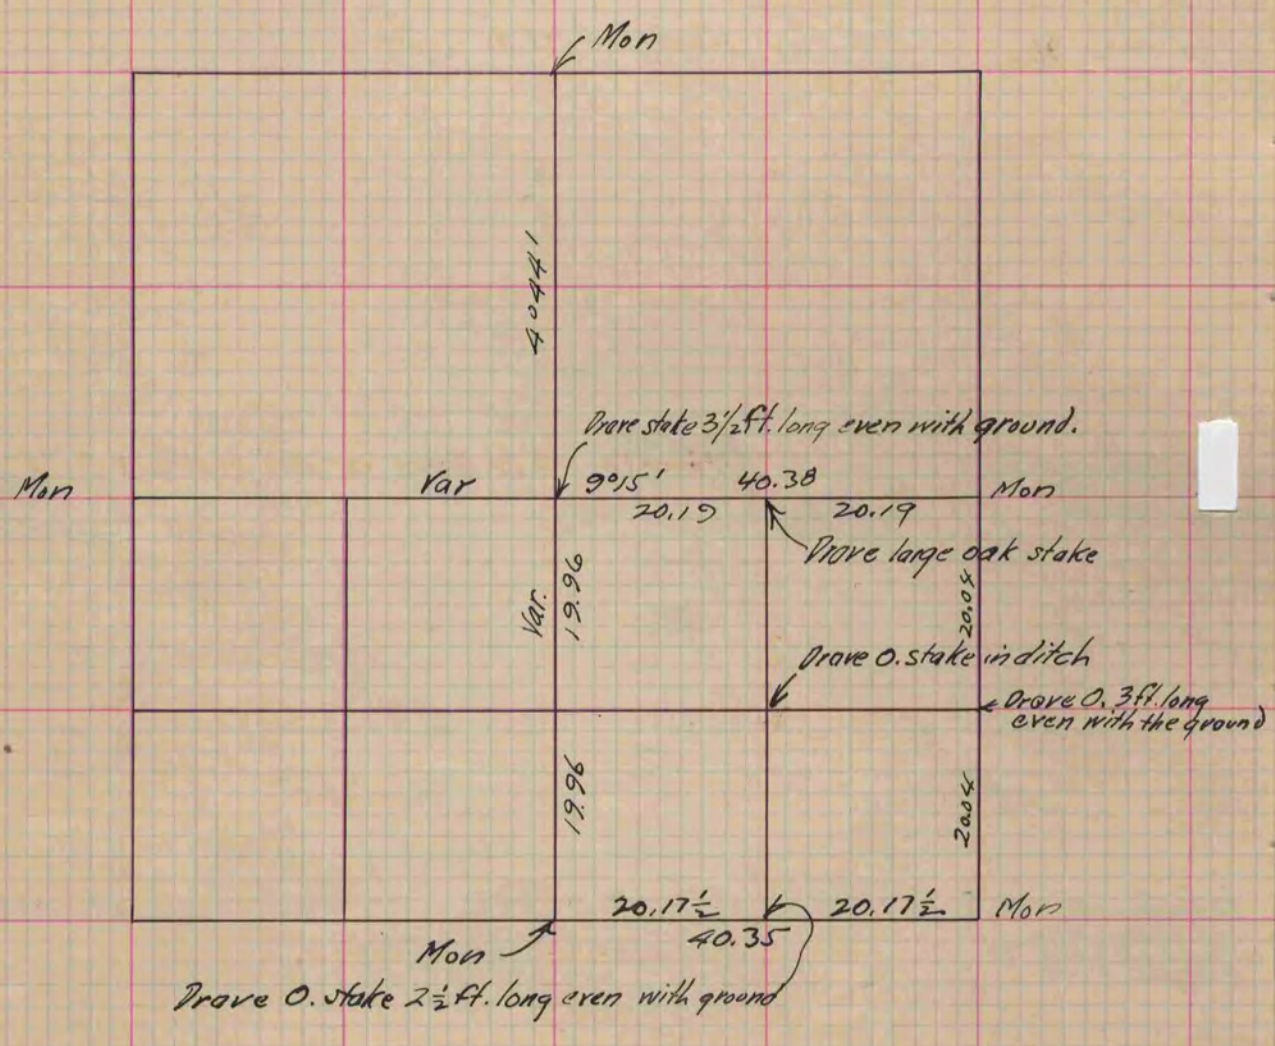 Mon
40441
Drave stake 3½ ft. long even with ground.
Mon
Var
9°15'
40.38
Mon
20.19
20.19
Drove large oak stake
Var.
19.96
20.04
Drove O. stake in ditch
Drove O. 3ft. long
even with the ground
19.96
20.04
20.17½
20.17½
Mon
40.35
Mon
Drave O. stake 2½ ft. long even with ground